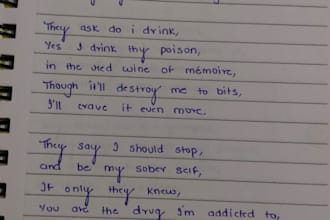 They ask do i drink,
Yes I drink thy poison,
in the red wine of mémoire,
Though it'll destroy me to bits,
I'll crave it even more.
They say I should stop,
and be my sober self,
If only they knew,
You are the drug I'm addicted to,